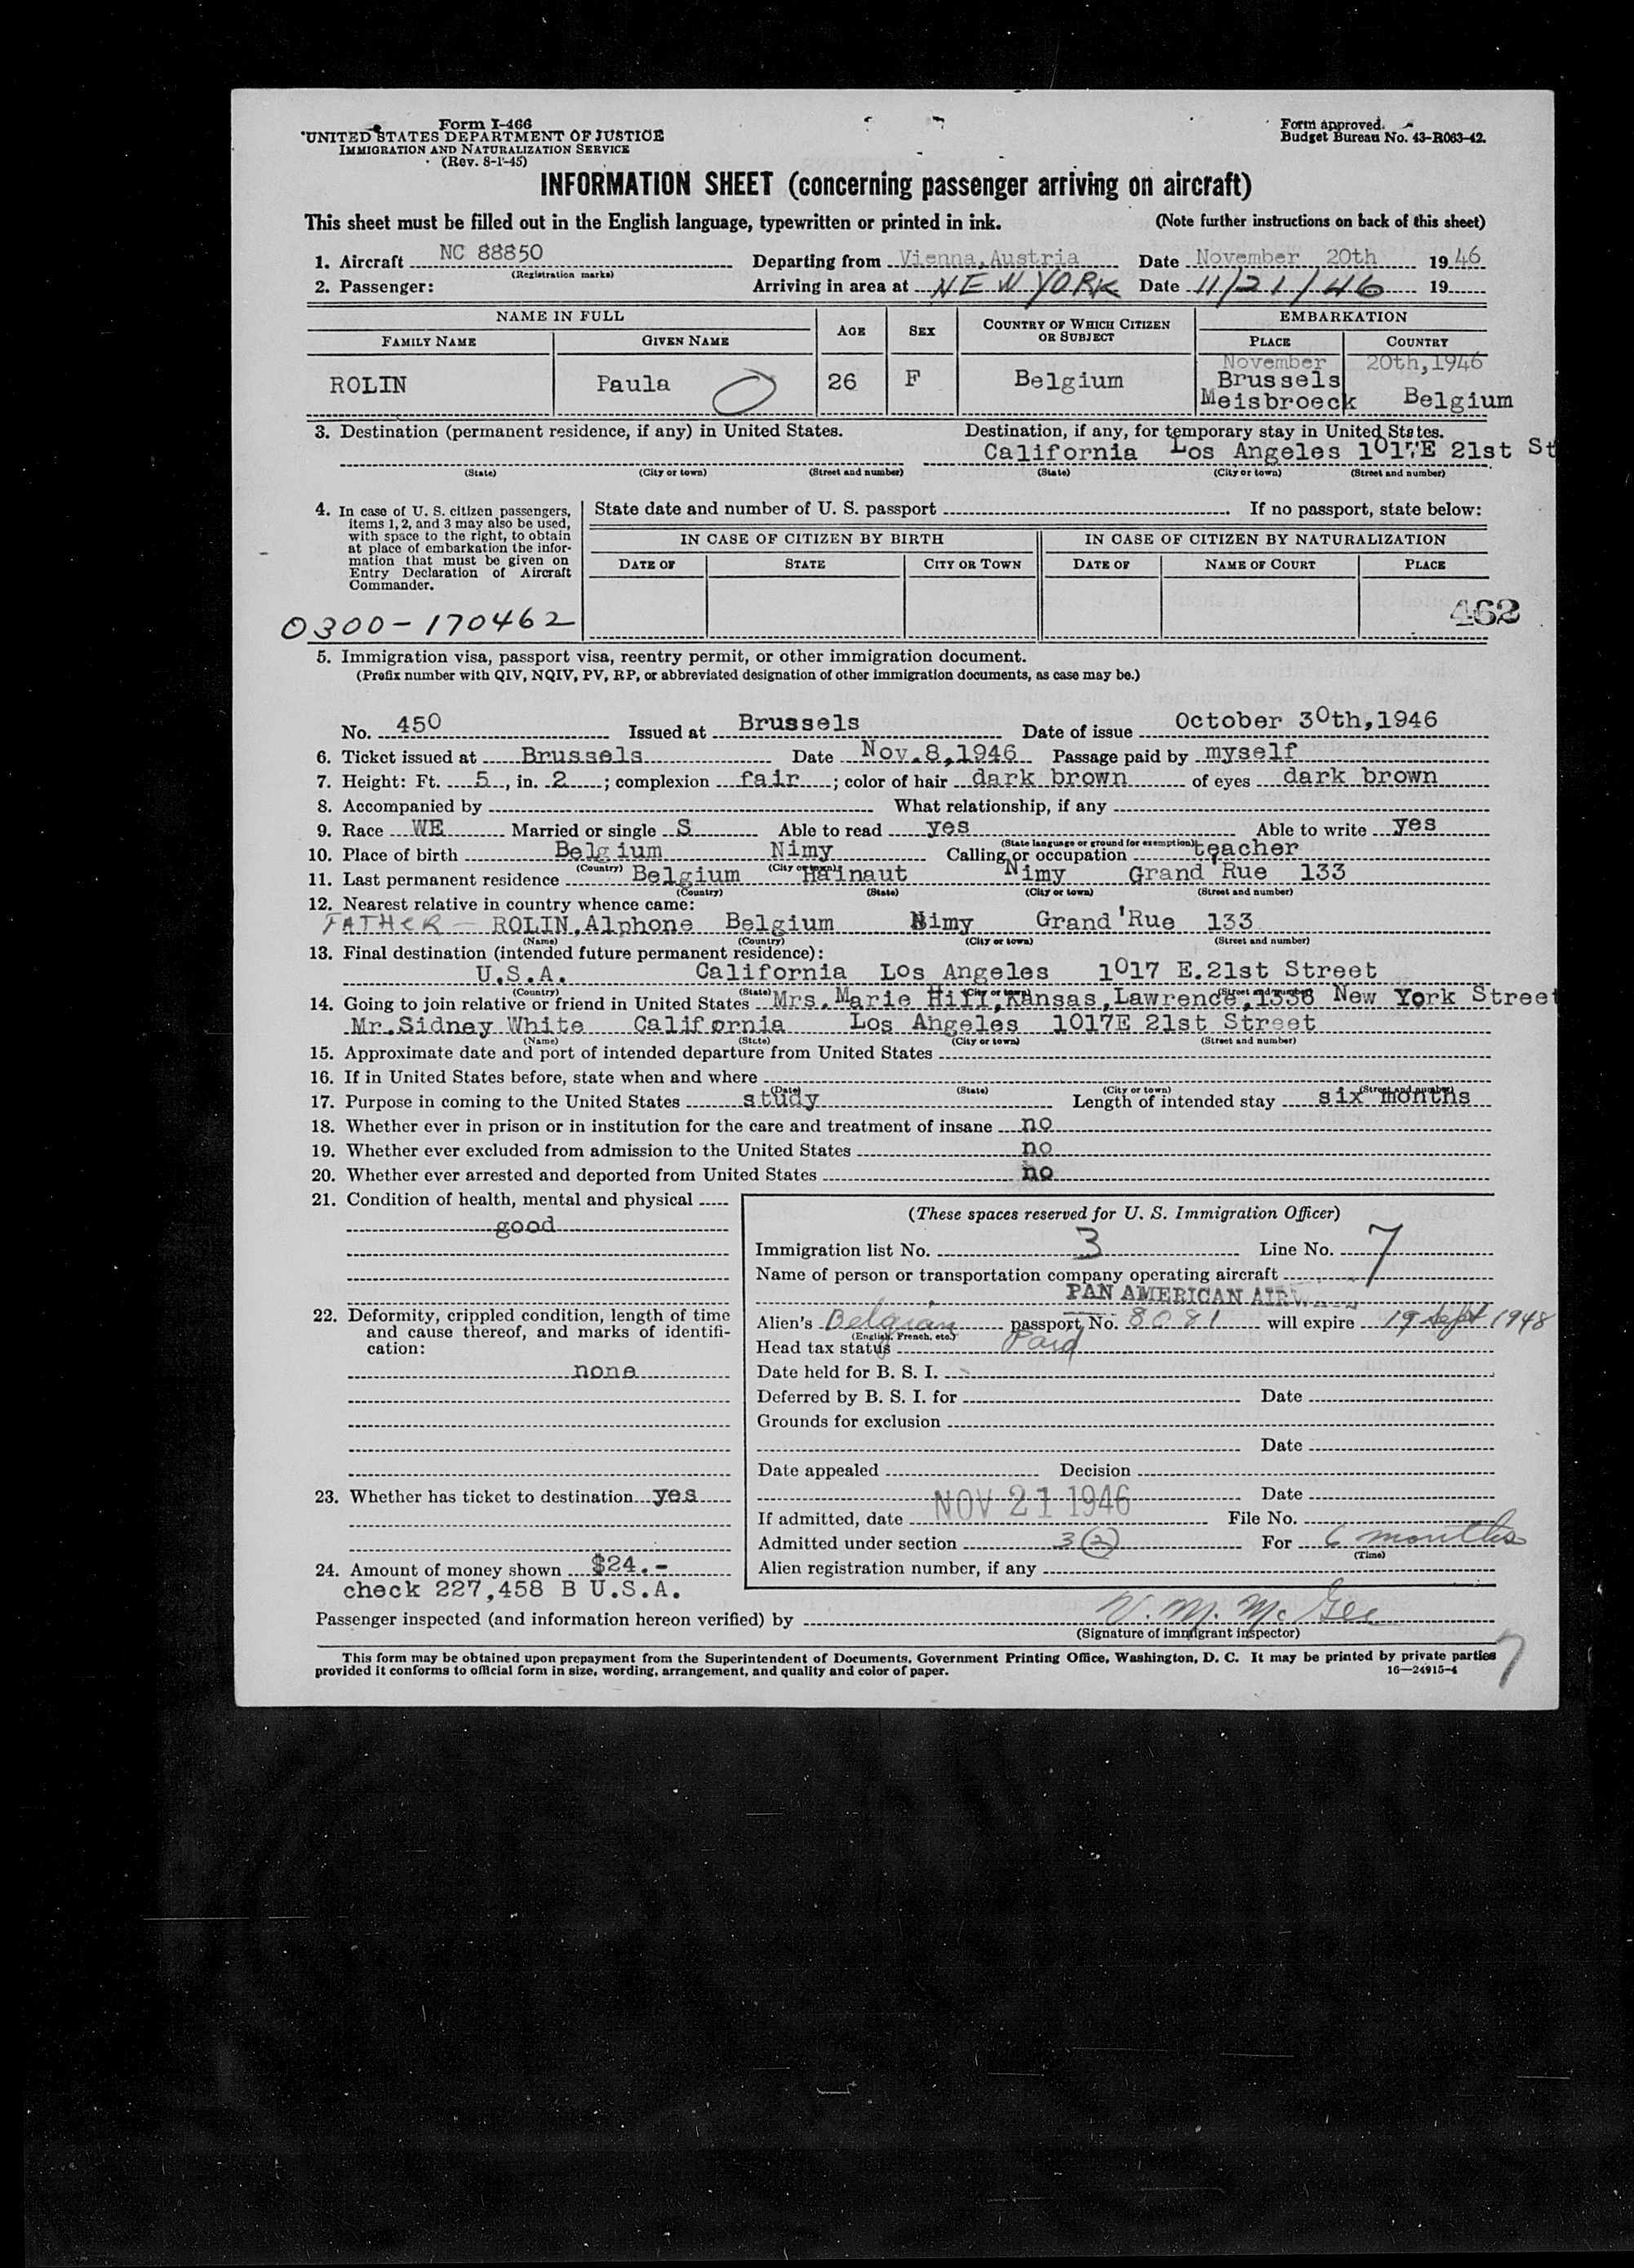 Form I-466
UNITED STATES DEPARTMENT OF JUSTICE
IMMIGRATION AND NATURALIZATION SERVICE
(Rev. 8-1-45)
Form approved.
Budget Bureau No. 43-R063-42.
INFORMATION SHEET (concerning passenger arriving on aircraft)
This sheet must be filled out in the English language, typewritten or printed in ink. (Note further instructions on back of this sheet)
1. Aircraft NC 88850 Departing from Vienna, Austria Date November 20th 1946
(Registration marks)
2. Passenger: Arriving in area at NEW YORK Date 11/21/46 19
NAME IN FULL AGE SEX COUNTRY OF WHICH CITIZEN OR SUBJECT EMBARKATION
FAMILY NAME GIVEN NAME PLACE COUNTRY
November 20th,1946
ROLIN Paula 26 F Belgium Brussels
Meisbroeck Belgium
3. Destination (permanent residence, if any) in United States. Destination, if any, for temporary stay in United States.
California Los Angeles 1017E 21st St
(State) (City or town) (Street and number) (State) (City or town) (Street and number)
4. In case of U. S. citizen passengers, items 1, 2, and 3 may also be used, with space to the right, to obtain at place of embarkation the information that must be given on Entry Declaration of Aircraft Commander.
State date and number of U. S. passport If no passport, state below:
IN CASE OF CITIZEN BY BIRTH IN CASE OF CITIZEN BY NATURALIZATION
DATE OF STATE CITY OR TOWN DATE OF NAME OF COURT PLACE
462
0300-170462
5. Immigration visa, passport visa, reentry permit, or other immigration document.
(Prefix number with QIV, NQIV, PV, RP, or abbreviated designation of other immigration documents, as case may be.)
No. 450 Issued at Brussels Date of issue October 30th,1946
6. Ticket issued at Brussels Date Nov.8,1946 Passage paid by myself
7. Height: Ft. 5, in. 2; complexion fair; color of hair dark brown of eyes dark brown
8. Accompanied by What relationship, if any
9. Race WE Married or single S Able to read yes Able to write yes
(State language or ground for exemption)
10. Place of birth Belgium Nimy Calling or occupation teacher
(Country) (City or town)
11. Last permanent residence Belgium Hainaut Nimy Grand'Rue 133
(Country) (State) (City or town) (Street and number)
12. Nearest relative in country whence came:
FATHER - ROLIN.Alphone Belgium Nimy Grand'Rue 133
(Name) (Country) (City or town) (Street and number)
13. Final destination (intended future permanent residence):
U.S.A. California Los Angeles 1017 E.21st Street
(Country) (State) (City or town) (Street and number)
14. Going to join relative or friend in United States Mrs.Marie Hill,Kansas,Lawrence,1336 New York Street
Mr.Sidney White California Los Angeles 1017E 21st Street
(Name) (State) (City or town) (Street and number)
15. Approximate date and port of intended departure from United States
16. If in United States before, state when and where
(Date) (State) (City or town) (Street and number)
17. Purpose in coming to the United States study Length of intended stay six months
18. Whether ever in prison or in institution for the care and treatment of insane no
19. Whether ever excluded from admission to the United States no
20. Whether ever arrested and deported from United States no
21. Condition of health, mental and physical
good
22. Deformity, crippled condition, length of time and cause thereof, and marks of identification:
none
23. Whether has ticket to destination yes
24. Amount of money shown $24.-
check 227,458 B U.S.A.
(These spaces reserved for U. S. Immigration Officer)
Immigration list No. 3 Line No. 7
Name of person or transportation company operating aircraft
PAN AMERICAN AIRWAYS
Alien's Belgian passport No. 8081 will expire 19 Sept 1948
(English, French, etc.)
Head tax status Paid
Date held for B. S. I.
Deferred by B. S. I. for Date
Grounds for exclusion
Date
Date appealed Decision
Date
If admitted, date NOV 21 1946 File No.
Admitted under section 3(2) For 6 months
(Time)
Alien registration number, if any
Passenger inspected (and information hereon verified) by V. M. McGee
(Signature of immigrant inspector)
7
This form may be obtained upon prepayment from the Superintendent of Documents, Government Printing Office, Washington, D. C. It may be printed by private parties
provided it conforms to official form in size, wording, arrangement, and quality and color of paper. 16—24915-4